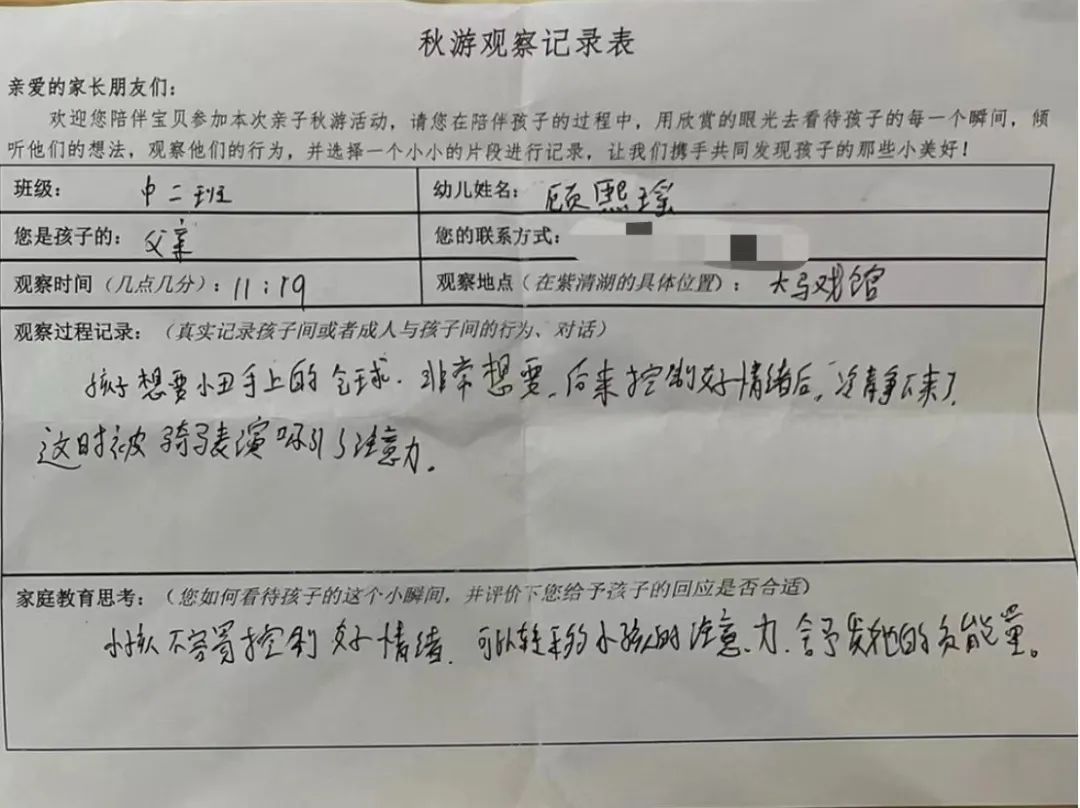 秋游观察记录表
亲爱的家长朋友们：
欢迎您陪伴宝贝参加本次亲子秋游活动，请您在陪伴孩子的过程中，用欣赏的眼光去看待孩子的每一个瞬间，倾
听他们的想法，观察他们的行为，并选择一个小小的片段进行记录，让我们携手共同发现孩子的那些小美好！
班级： 中二班 幼儿姓名： 顾熙瑶
您是孩子的： 父亲 您的联系方式：
观察时间（几点几分）：11:19 观察地点（在紫清湖的具体位置）： 大马戏馆
观察过程记录：（真实记录孩子间或者成人与孩子间的行为、对话）
孩子想要小丑手上的气球．非常想要，后来控制好情绪后，冷静下来了．
这时被骑马表演吸引了注意力．
家庭教育思考：（您如何看待孩子的这个小瞬间，并评价下您给予孩子的回应是否合适）
小孩不容易控制好情绪．可以转移小孩的注意力．给予其他的负能量。